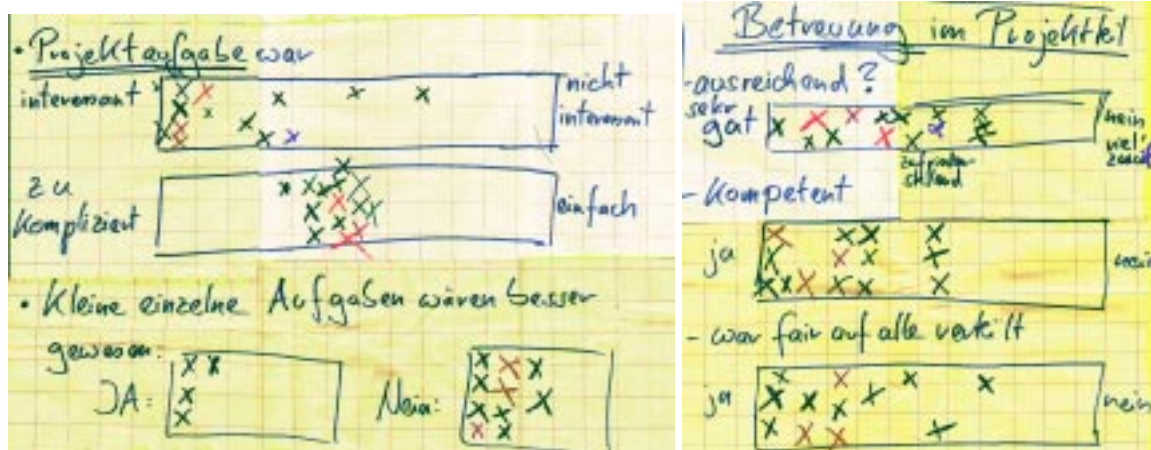 • Projektaufgabe war
interessant
nicht
interessant
zu
kompliziert
einfach
• Kleine einzelne Aufgaben wären besser
gewesen:
JA:
Nein:
Betreuung im Projekttl
- ausreichend?
sehr
gut
nein
viel
zufrieden
stellend
- kompetent
ja
nein
- war fair auf alle verteilt
ja
nein